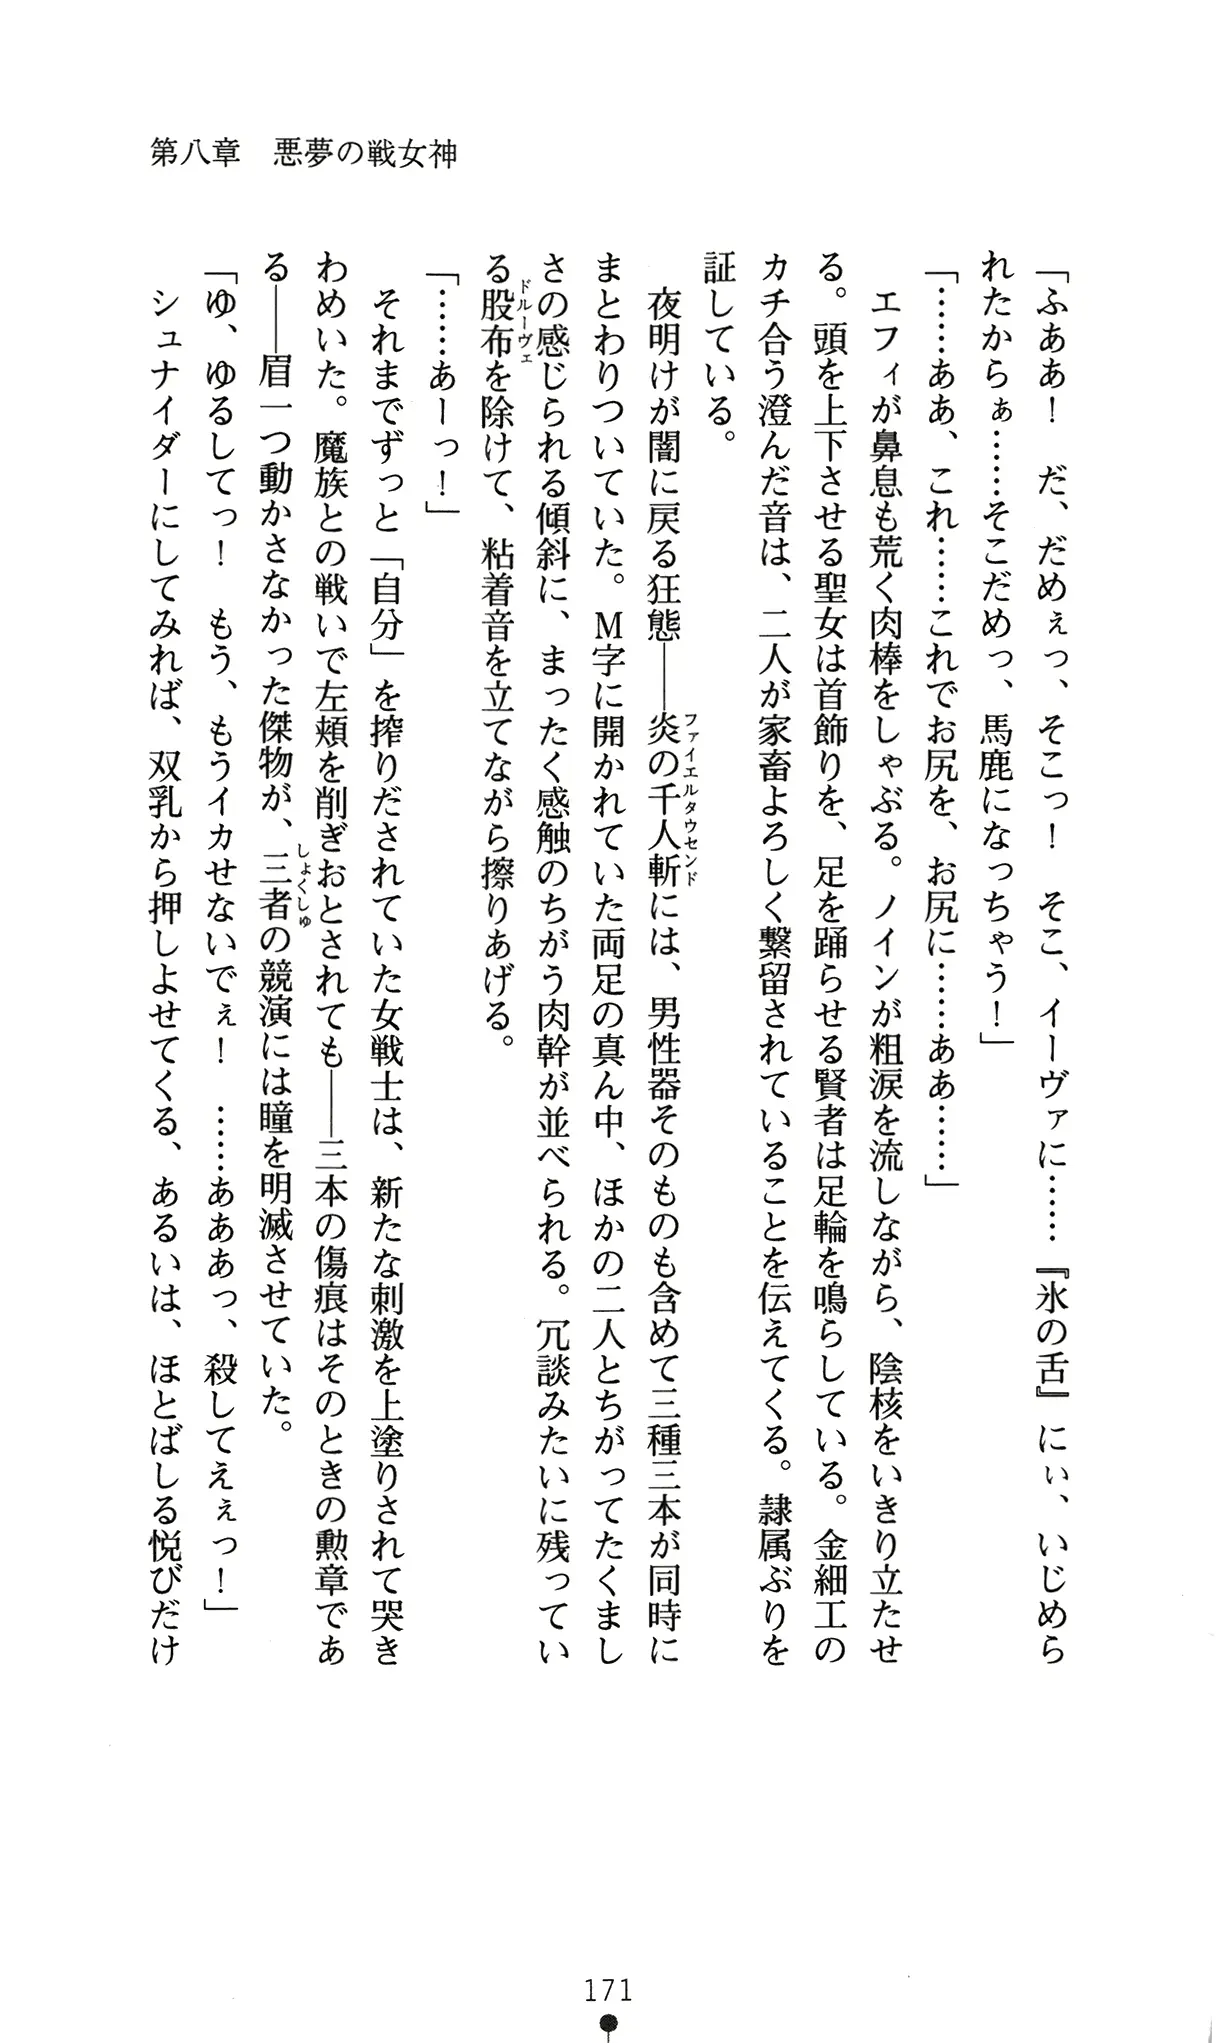 第八章　悪夢の戦女神
「ふああ！　だ、だめぇっ、そこっ！　そこ、イーヴァに……『氷の舌』にぃ、いじめら
れたからぁ……そこだめっ、馬鹿になっちゃう！」
「……ああ、これ……これでお尻を、お尻に……ああ……」
　エフィが鼻息も荒く肉棒をしゃぶる。ノインが粗涙を流しながら、陰核をいきり立たせ
る。頭を上下させる聖女は首飾りを、足を踊らせる賢者は足輪を鳴らしている。金細工の
カチ合う澄んだ音は、二人が家畜よろしく繋留されていることを伝えてくる。隷属ぶりを
証している。
　夜明けが闇に戻る狂態――炎の千人斬には、男性器そのものも含めて三種三本が同時に
ファイエルタウセンド
まとわりついていた。Ｍ字に開かれていた両足の真ん中、ほかの二人とちがってたくまし
さの感じられる傾斜に、まったく感触のちがう肉幹が並べられる。冗談みたいに残ってい
る股布を除けて、粘着音を立てながら擦りあげる。
ドルーヴェ
「……あーっ！」
　それまでずっと「自分」を搾りだされていた女戦士は、新たな刺激を上塗りされて哭き
わめいた。魔族との戦いで左頬を削ぎおとされても――三本の傷痕はそのときの勲章であ
る――眉一つ動かさなかった傑物が、三者の競演には瞳を明滅させていた。
しょくしゅ
「ゆ、ゆるしてっ！　もう、もうイカせないでぇ！　……あああっ、殺してえぇっ！」
　シュナイダーにしてみれば、双乳から押しよせてくる、あるいは、ほとばしる悦びだけ
171